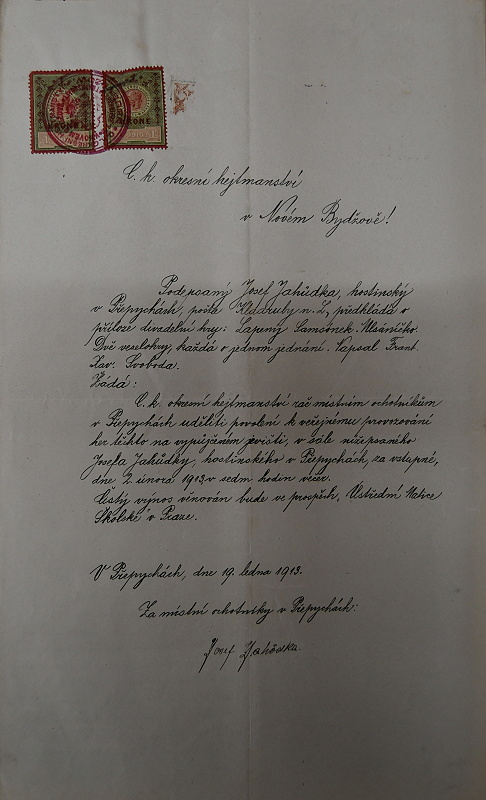 KRONE
1
KRONE
1
C. k. okresní hejtmanství
v Novém Bydžově!
Podepsaný Josef Jahůdka, hostinský
v Přepychách, pošta Kladruby n. L., předkládá v
příloze divadelní hry: Lapený Samsónek. Mlsáníčko.
Dvě veselohry, každá o jednom jednání. Napsal Frant.
Xav. Svoboda.
Žádá:
C. k. okresní hejtmanství rač místním ochotníkům
v Přepychách uděliti povolení k veřejnému provozování
her těchto na vypůjčeném jevišti, v sále nížepsaného
Josefa Jahůdky, hostinského v Přepychách, za vstupné,
dne 2. února 1913 v sedm hodin večer.
Čistý výnos věnován bude ve prospěch „Ústřední Matice
Školské" v Praze.
V Přepychách, dne 19. ledna 1913.
Za místní ochotníky v Přepychách:
Josef Jahůdka